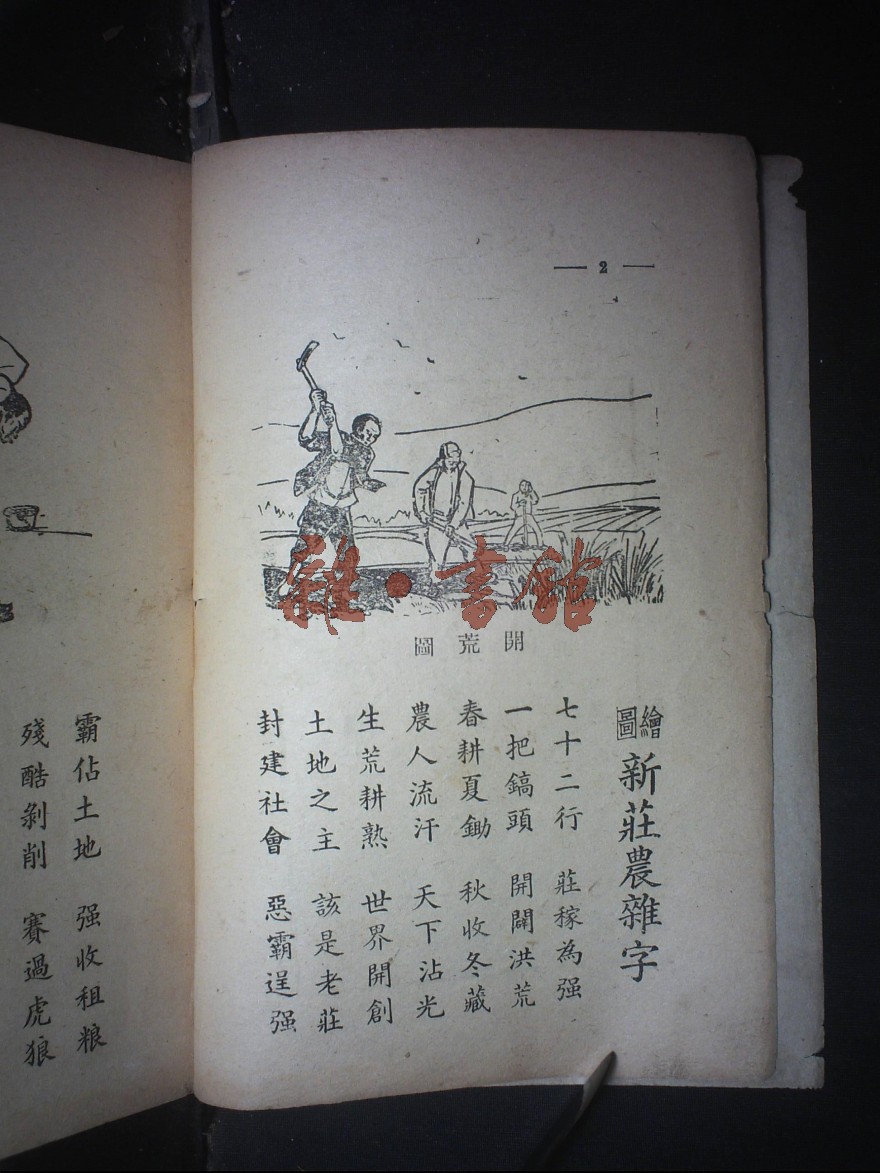 2
開荒圖
繪圖 新莊農雜字
七十二行 莊稼為强
一把鎬頭 開闢洪荒
春耕夏鋤 秋收冬藏
農人流汗 天下沾光
生荒耕熟 世界開創
土地之主 該是老莊
封建社會 惡霸逞强
霸佔土地 强收租粮
殘酷剝削 賽過虎狼
雜·書館